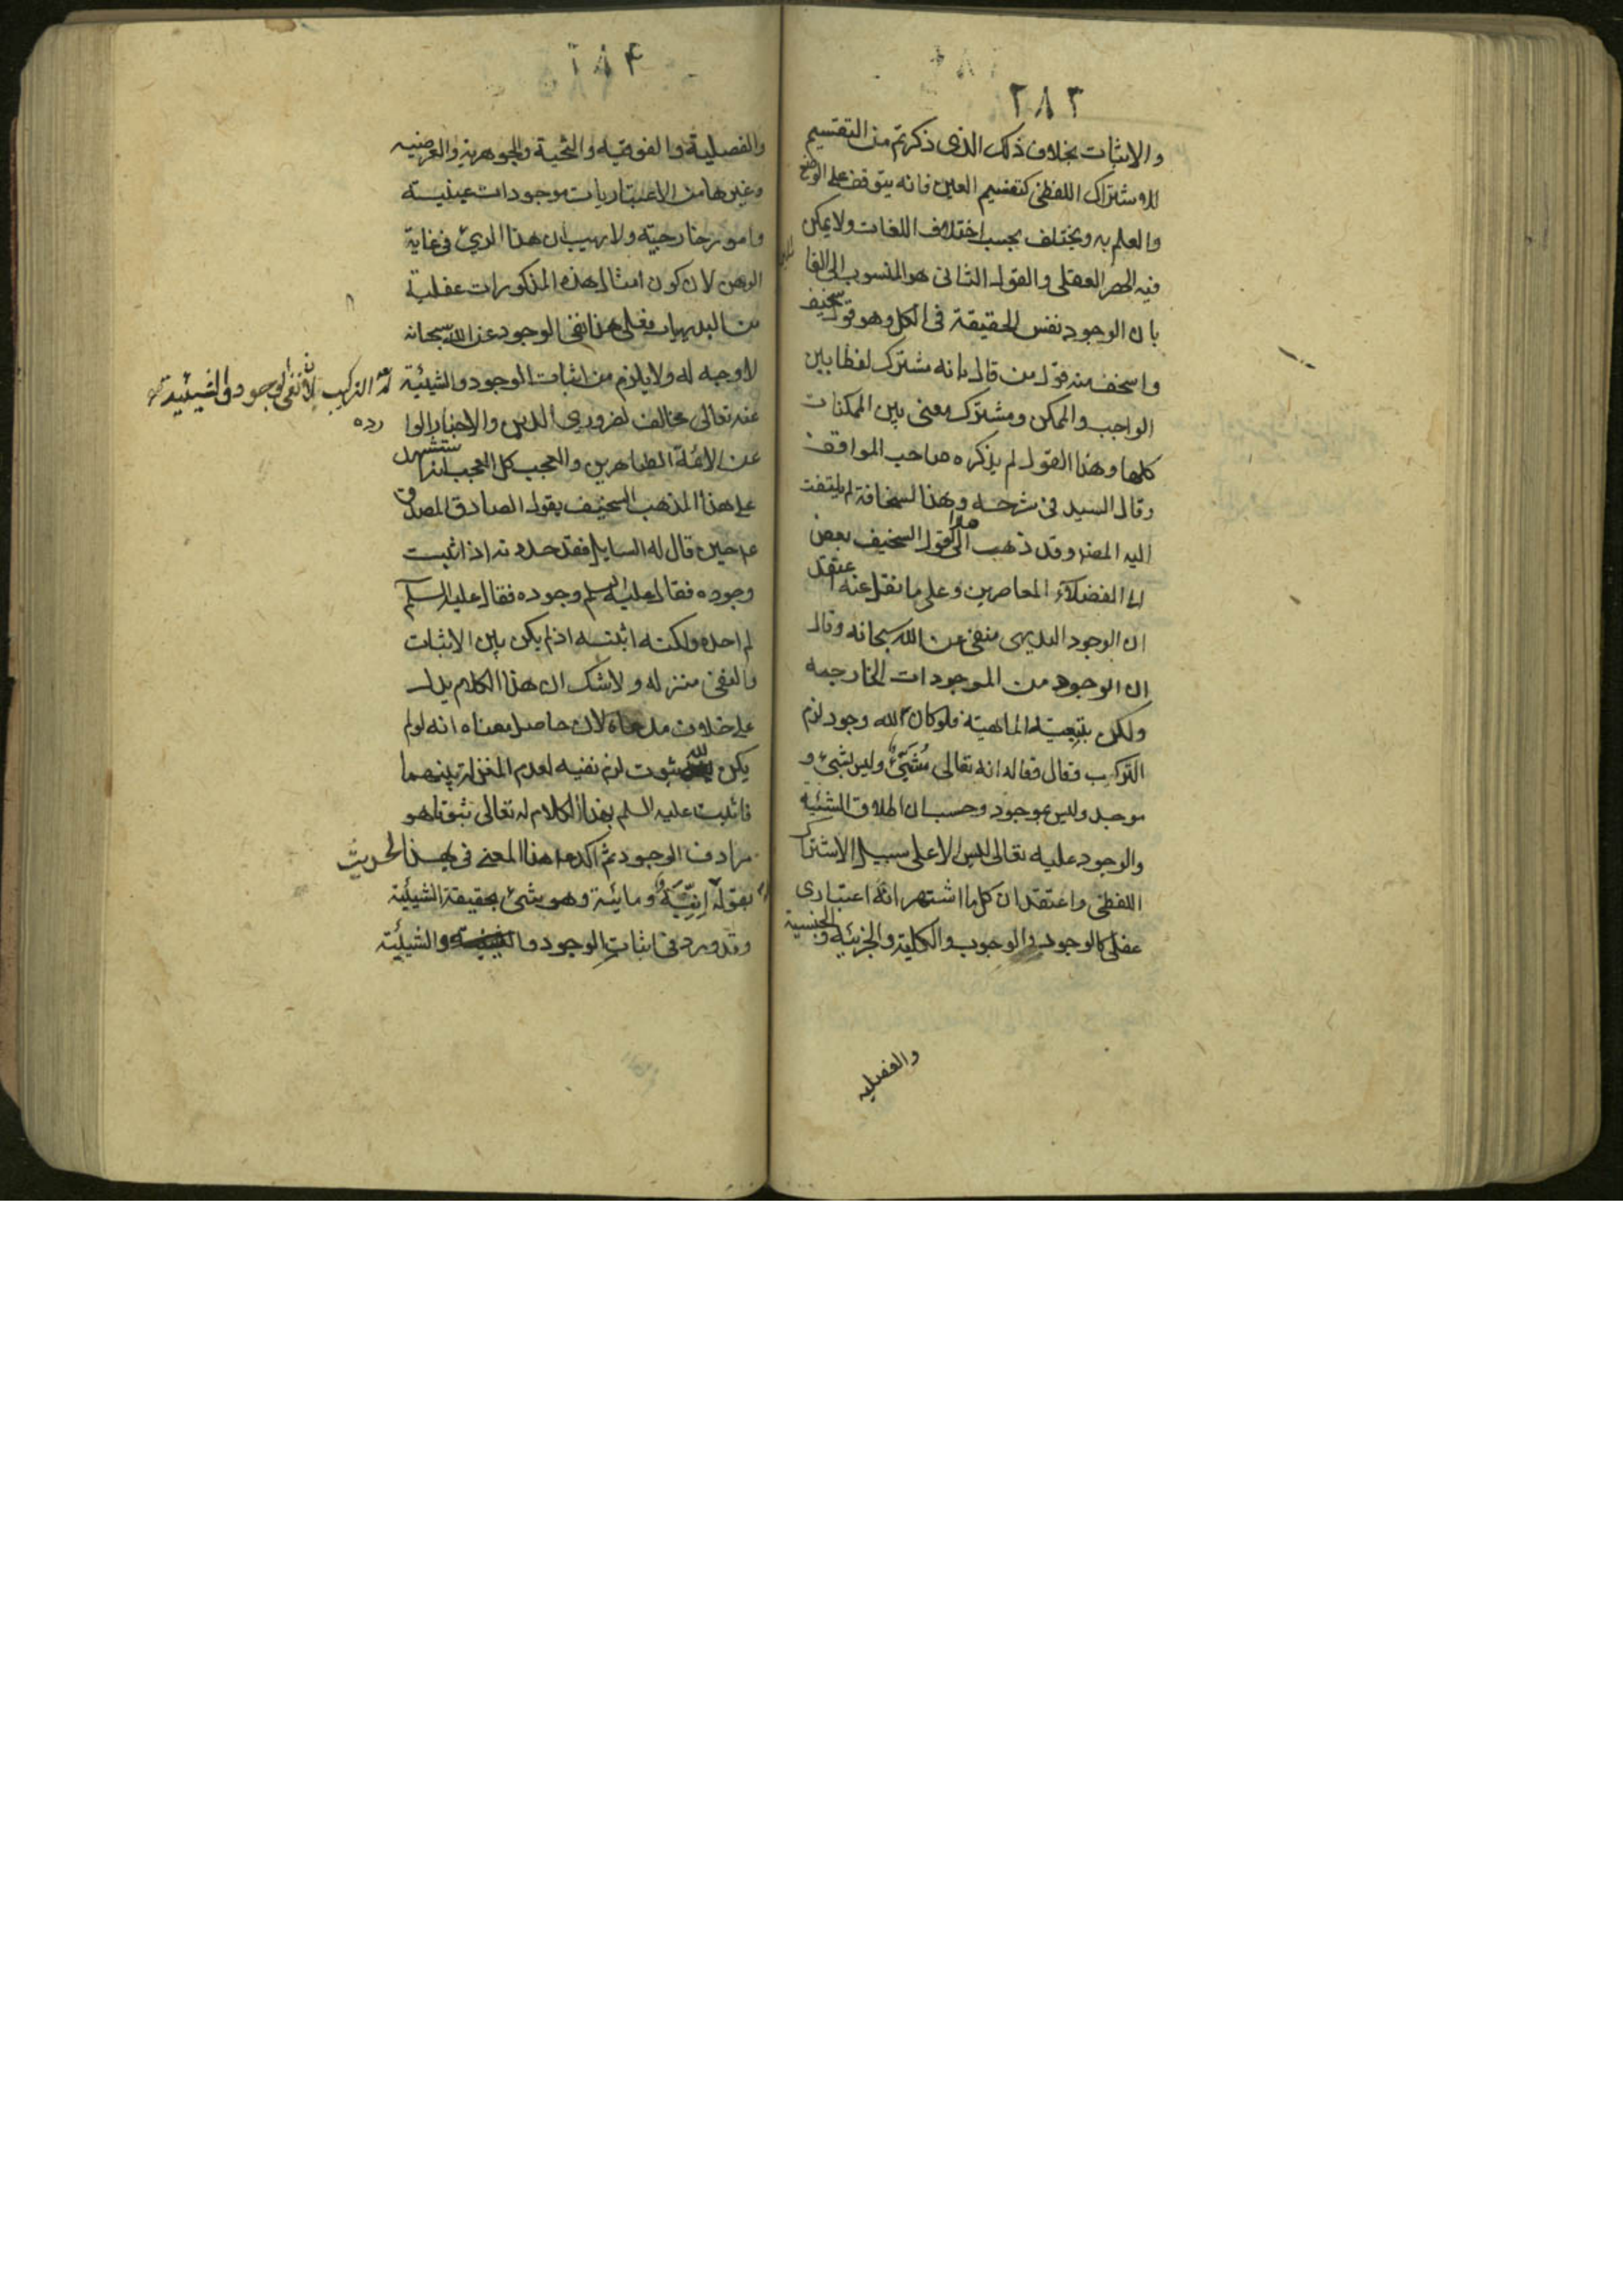 ٢٨٣
والاثبات بخلاف ذلك الذى ذكرتم من التقسيم
للاشتراك اللفظى كتقسيم العين فانه يتوقف على الوضع
والعلم به ويختلف بحسب اختلاف اللغات ولا يمكن
فيه الحصر العقلى والقول الثانى هو المنسوب الى القا
بان الوجود نفس الحقيقة فى الكل وهو قول سخيف
واسخف منه قول من قال بانه مشترك لفظا بين
الواجب والممكن ومشترك معنى بين الممكنات
كلها وهذا القول لم يذكره صاحب المواقف
وقال السيد فى شرحه وهذا لسخافة لم يلتفت
اليه المصنف وقد ذهب الى هذا القول السخيف بعض
الفضلاء المعاصرين وعلى ما نقل عنه اعتقد
ان الوجود البديهى منفى عن الله سبحانه وقال
ان الوجود من الموجودات الخارجيه
ولكن بتبعية الماهية فلو كان لله وجود لزم
التركيب فقال فقال انه تعالى مُشَيِّئٌ وليس بشئ و
موجد وليس بموجود وحسب ان اطلاق الشئيه
والوجود عليه تعالى ليس الا على سبيل الاشتراك
اللفظى واعتقد ان كل ما اشتهر انه اعتبارى
عقلى كالوجود والوجوب والكلية والجزئيه والجنسية
والفصليه
٢٨٤
والفصلية والفوقيه والتحية والجوهرية والعرضيه
وغيرها من الاعتباريات موجودات عينية
وامور خارجيه ولا ريب ان هذا الرأي فى غاية
الوهن لان كون امثال هذه المذكورات عقلية
من البديهيات فعلى هذا نفى الوجود عن الله سبحانه
لا وجه له ولا يلزم من اثبات الوجود والشيئية
له التركيب لان نفى الوجود والشيئية
عنه تعالى مخالف لضرورى الدين والاخبار الوا
رده
عن الائمة الطاهرين والعجب كل العجب انه يستشهد
على هذا المذهب السخيف بقول الصادق المصدق
ع حين قال له السايل فقد حددته اذ اثبت
وجوده فقال عليه السلم وجوده فقال عليه السلم
لم احده ولكنه اثبته اذ لم يكن بين الاثبات
والنفى منزله ولا شك ان هذا الكلام يدل
على خلاف مدعاه لان حاصل معناه انه لو لم
يكن لله ثبوت لزم نفيه لعدم المنزلة بينهما
فاثبت عليه السلم بهذا الكلام له تعالى ثبوتا هو
مرادف الوجود ثم اكد هذا المعنى فى هذا الحديث
بقوله اِنِيَّة ومائية وهو شئ بحقيقة الشيئية
وقد ورد فى اثبات الوجود والشيئية